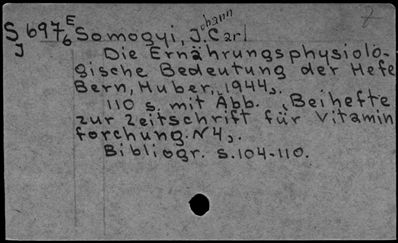 S 697 E Somogyi, Johann Carl
J 6 Die Ernährungsphysiolo-
gische Bedeutung der Hefe
Bern, Huber, 1944.
110 s. mit Abb. (Beihefte
zur Zeitschrift für Vitamin
forchung. N4).
Bibliogr. s. 104-110.